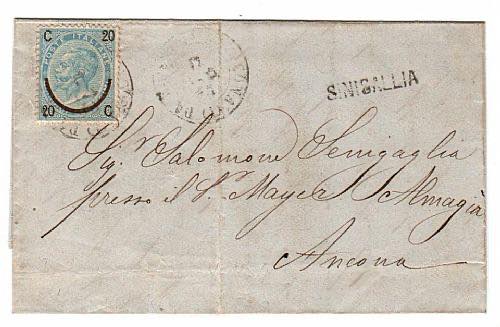 C 20
POSTE ITALIANE
20 C
SINIGALLIA
Sig.r Salomone Senigaglia
presso il S.r Mayer Almagià
Ancona